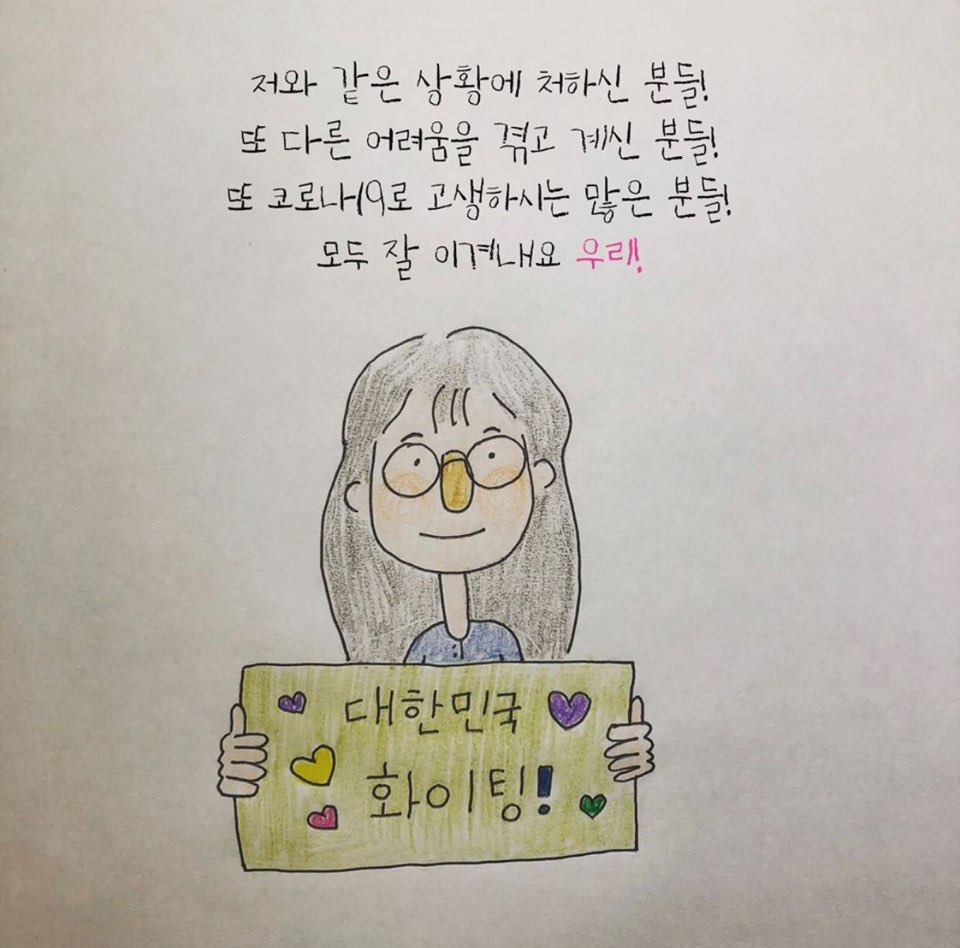 저와 같은 상황에 처하신 분들!
또 다른 어려움을 겪고 계신 분들!
또 코로나19로 고생하시는 많은 분들!
모두 잘 이겨내요 우리!
대한민국
화이팅!